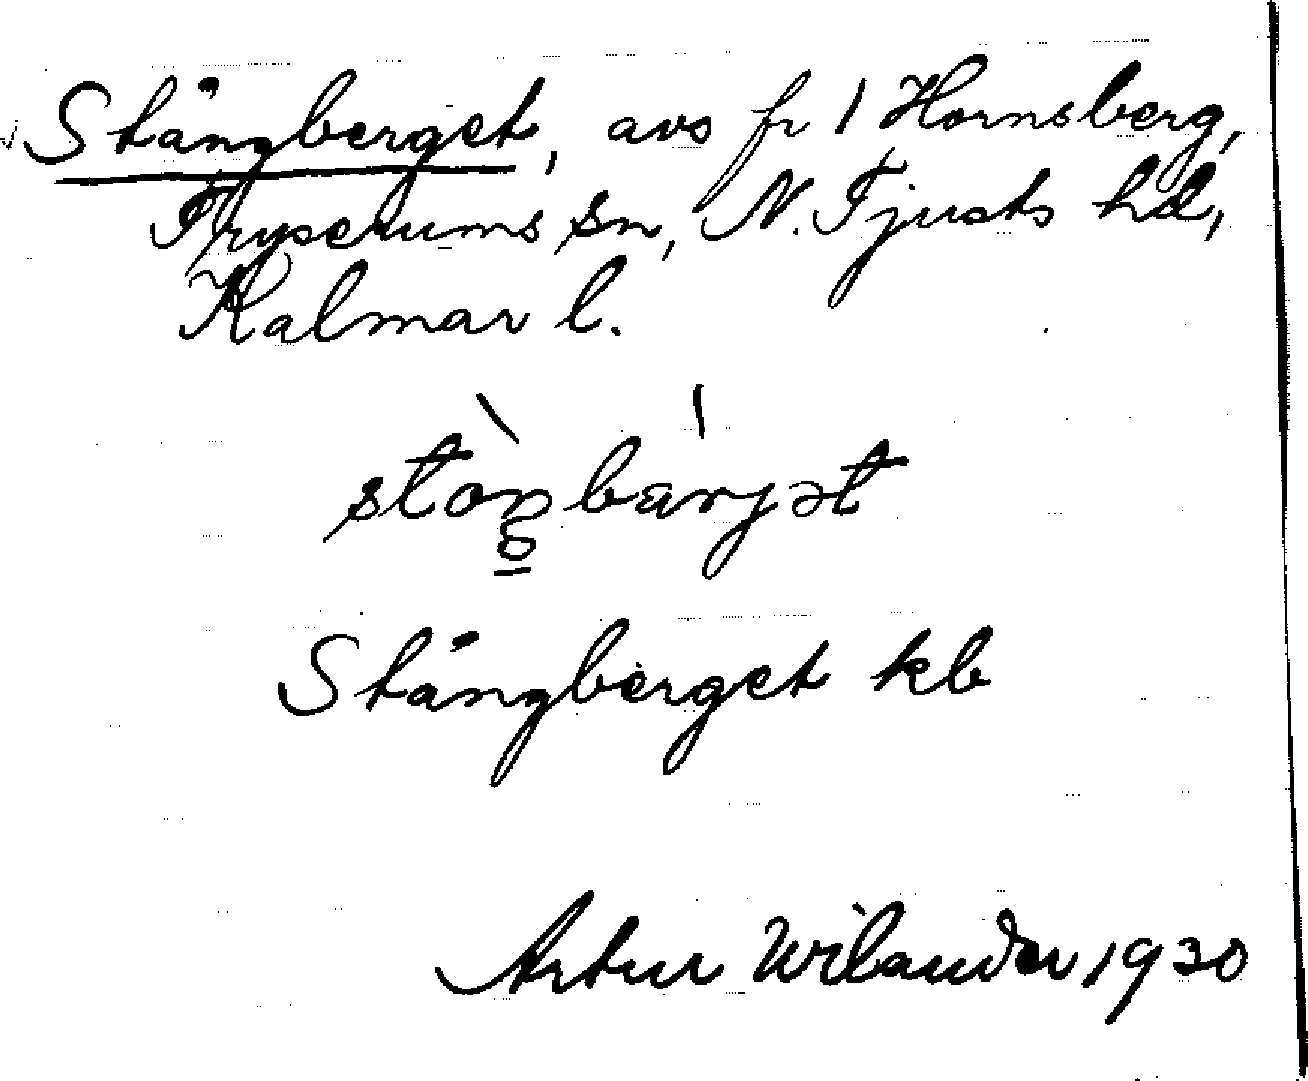 Stångberget, avs fr 1 Hornsberg,
Tryserums sn, N. Tjusts hd,
Kalmar l.
stòŋbárjət
Stångberget kb
Artur Wilander 1930